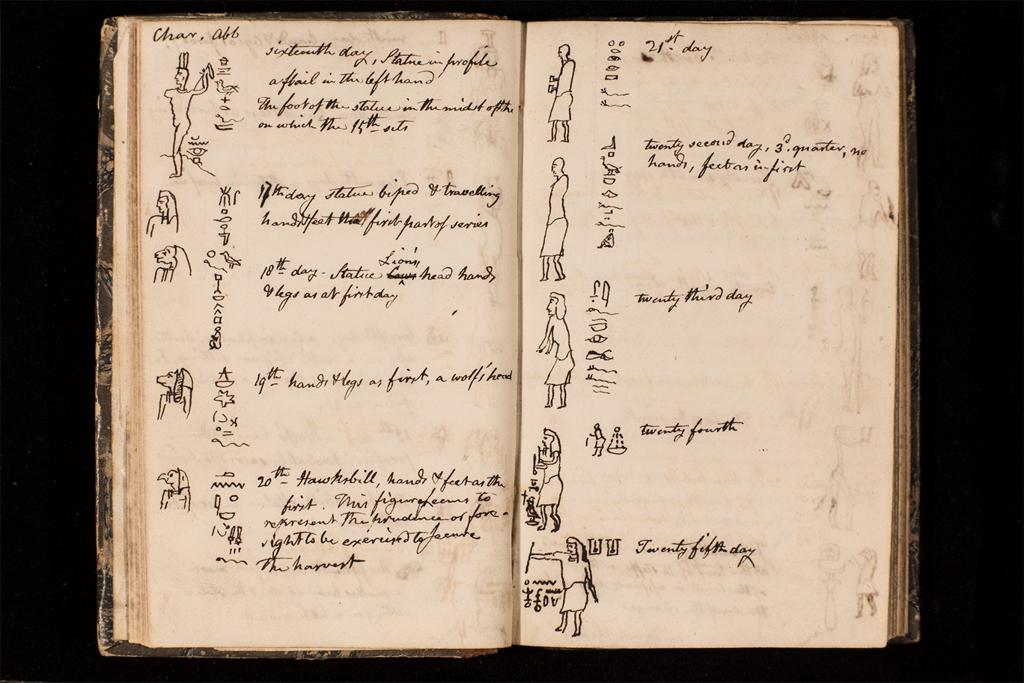 Char. Abb
sixteenth day, Statue in profile
a flail in the left hand
The foot of the statue in the midst of the
on which the 15th sits
17th day statue biped & travelling
hands & feet first part of series
18th day - Statue Lion's head hands
& legs as at first day
19th hands & legs as first, a wolf's head
20th Hawksbill, hands & feet as the
first. This figure seems to
represent the prudence or fore-
sight to be exercised to secure
the harvest
21st day
twenty second day, 3d. quarter, no
hands, feet as in first
twenty third day
twenty fourth
Twenty fifth day